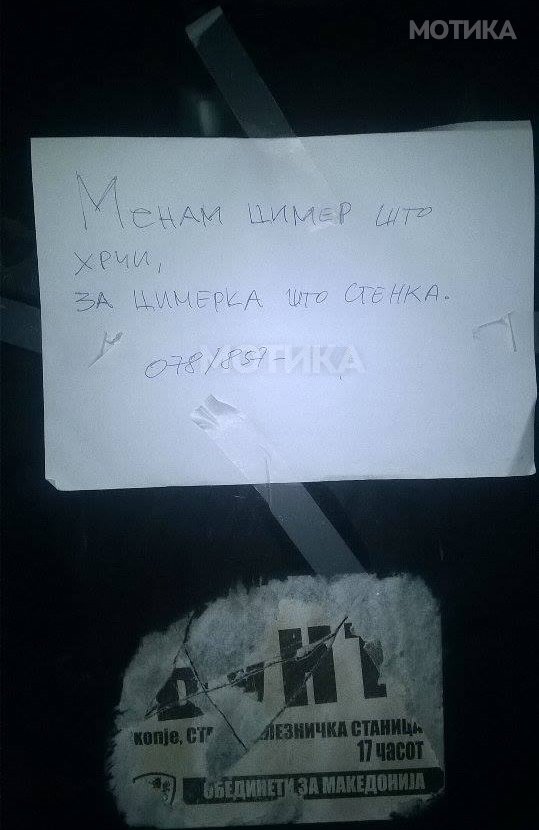 МОТИКА
Менам цимер што
хрчи,
за цимерка што стенка.
078/857-
МОТИКА
копје, СТ ЛЕЗНИЧКА СТАНИЦА
17 часот
ОБЕДИНЕТИ ЗА МАКЕДОНИЈА